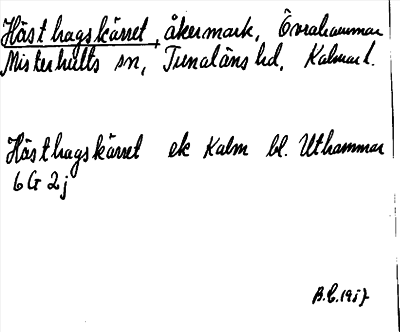 Hästhagskärret, åkermark, Övrahammar
Misterhults sn, Tunaläns hd, Kalmar l.
Hästhagskärret ek Kalm bl. Uthammar
6G 2j
B.C. 1957